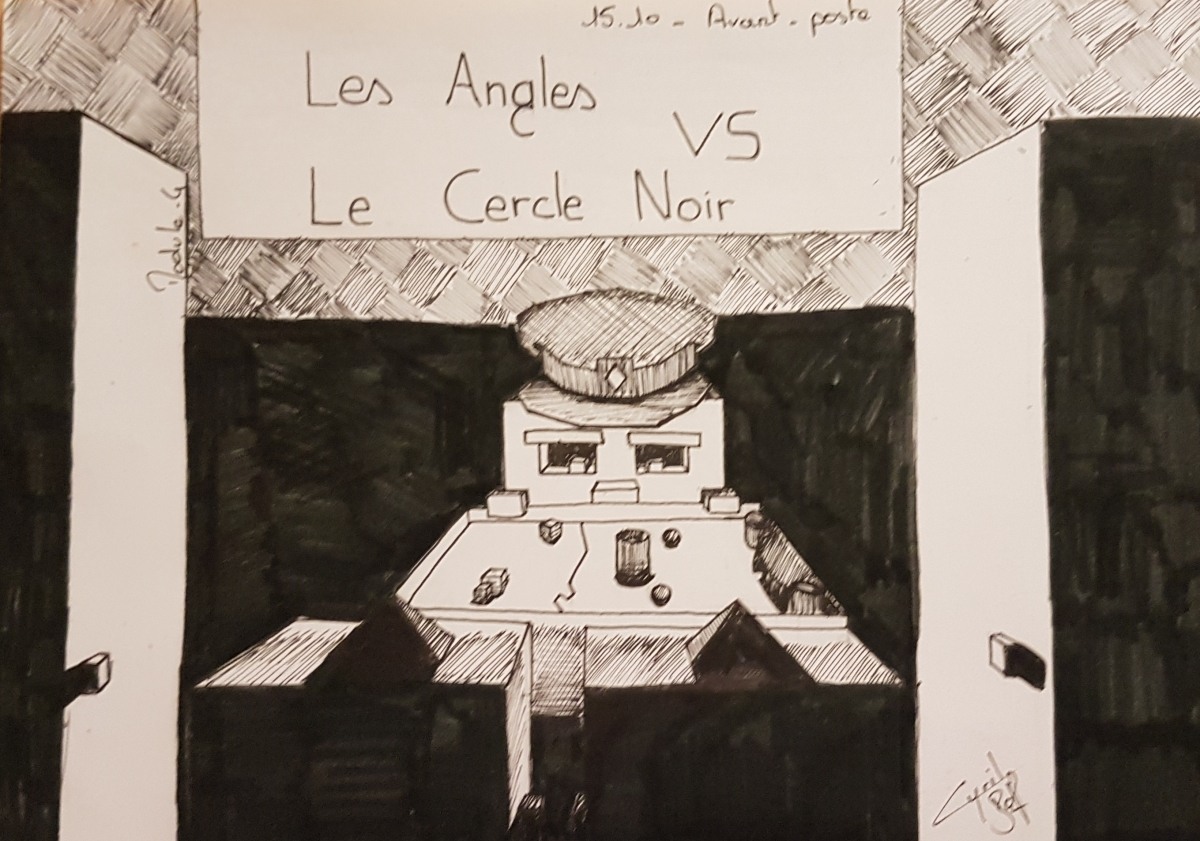 15.10 - Avant-poste
Les Angles
VS
Le Cercle Noir
Module-G
Cyril